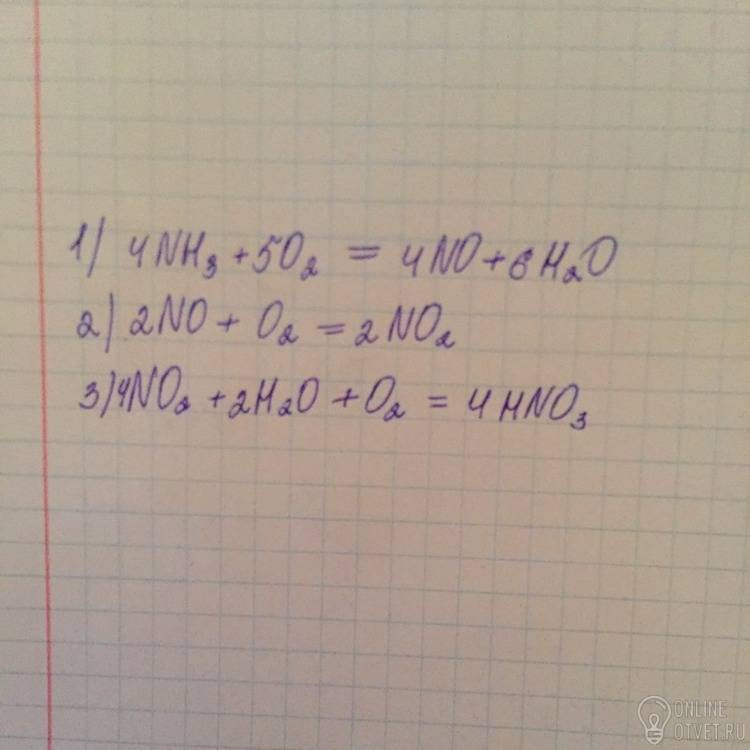 1) 4NH₃ + 5O₂ = 4NO + 6H₂O
2) 2NO + O₂ = 2NO₂
3) 4NO₂ + 2H₂O + O₂ = 4HNO₃
ONLINE
OTVET.RU